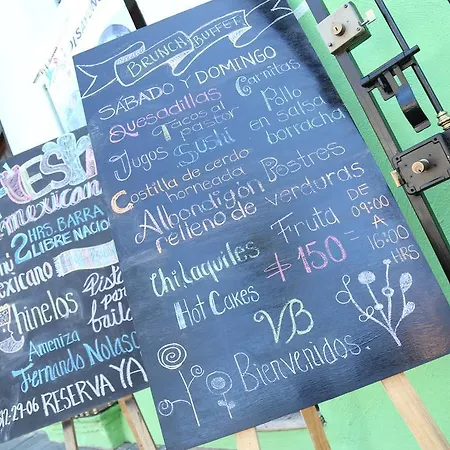 BRUNCH BUFFET
SÁBADO Y DOMINGO
Quesadillas
Carnitas
Tacos al pastor
Pollo en salsa borracha
Jugos
Sushi
Costilla de cerdo horneada
Postres
Albondigón de verduras
relleno
Chilaquiles
Fruta
DE 09:00 A 16:00 HRS
$150
Hot Cakes
VB
Bienvenidos
mexicana
2 HRS. BARRA LIBRE NACIONAL
mexicano
hinelos
Pista para bailar
Ameniza
Fernando Nolasco
2-29-06 RESERVA YA